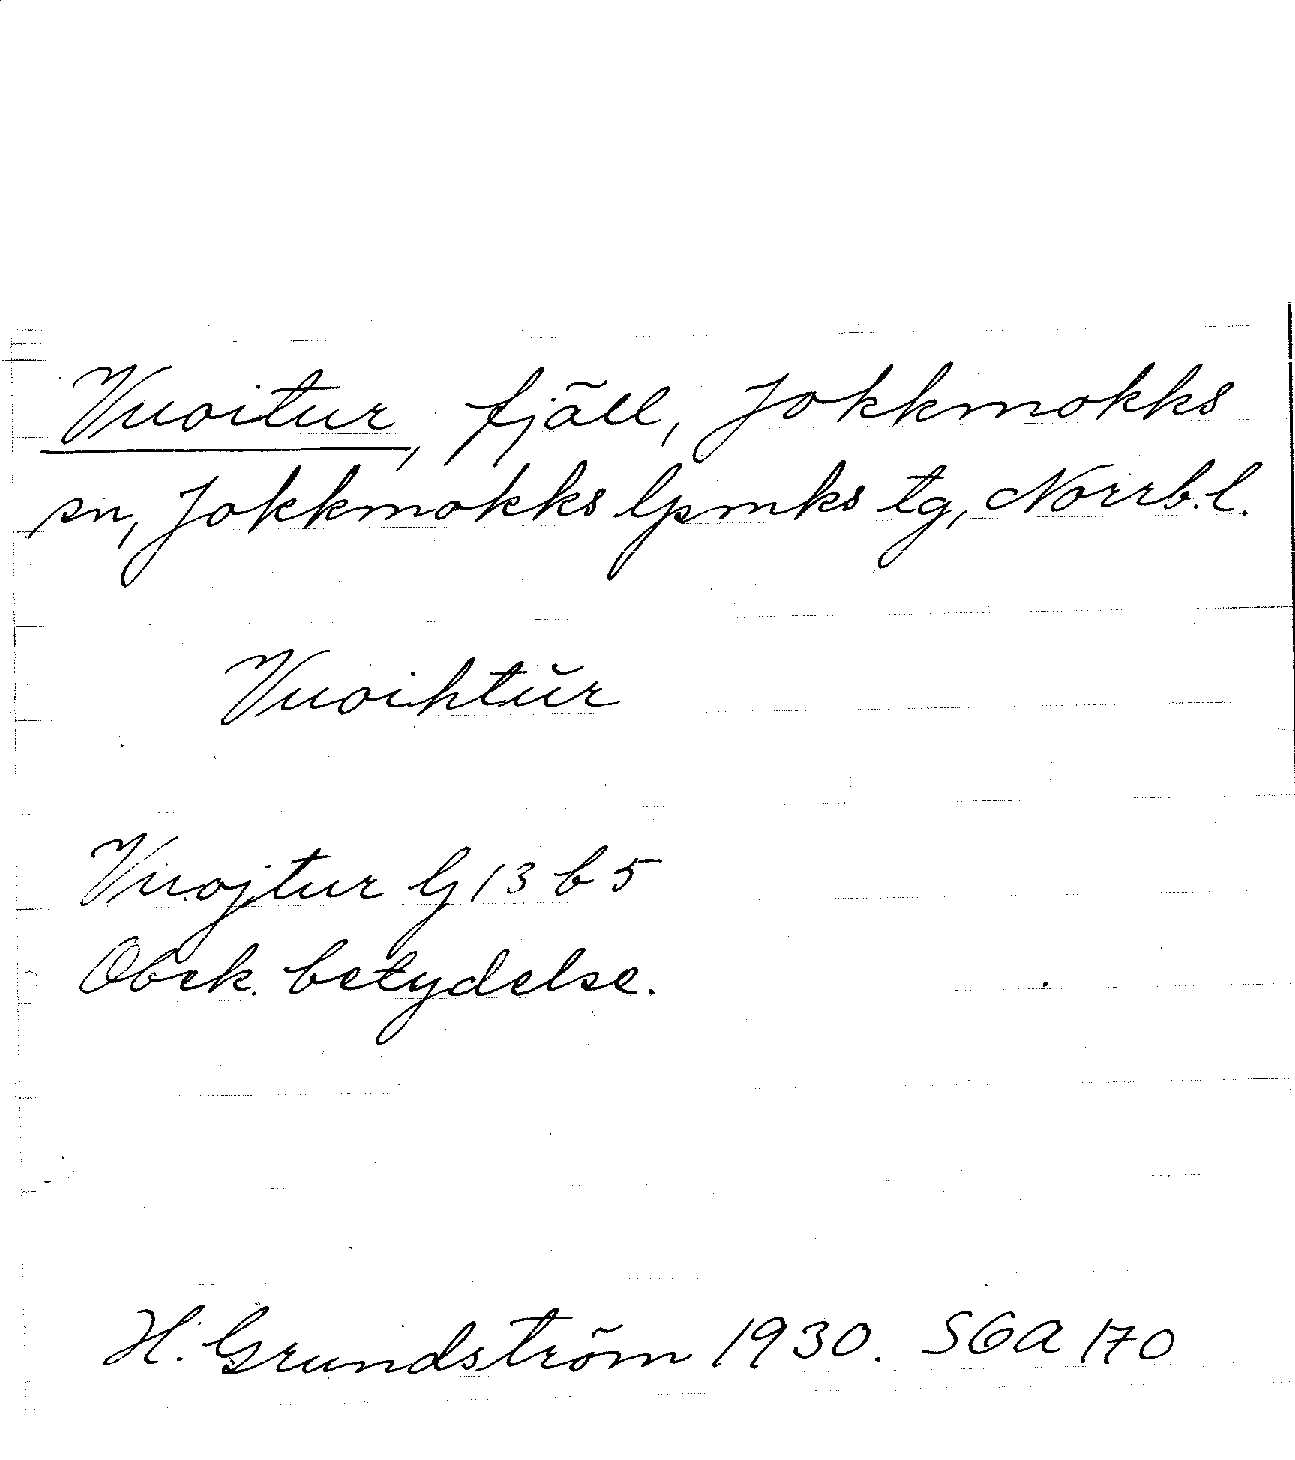 Vuoitur, fjäll, Jokkmokks
sn, Jokkmokks lpmks tg, Norrb. l.
Vuoihtŭr
Vuojtur lj 13 b 5
Obek. betydelse.
H. Grundström 1930. SOA 170